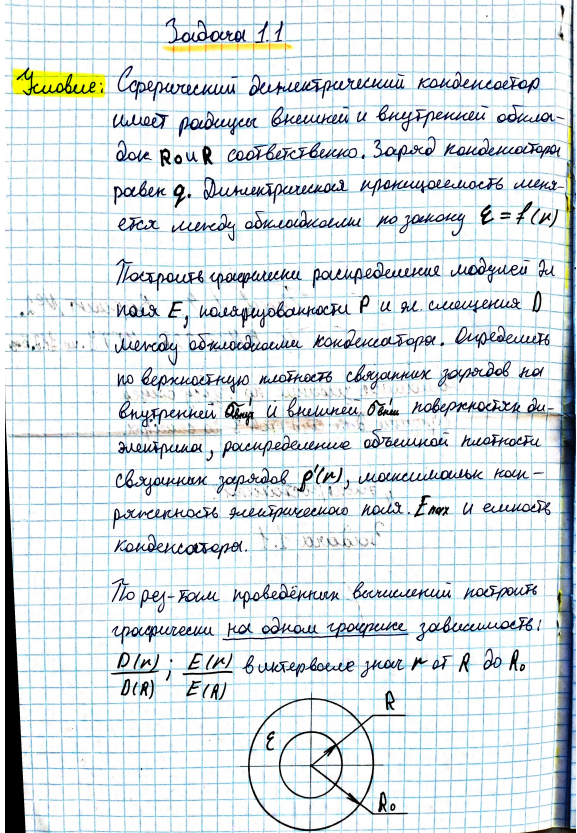 Задача 1.1
Условие: Сферический диэлектрический конденсатор
имеет радиусы внешней и внутренней обкла-
док R₀ и R соответственно. Заряд конденсатора
равен q. Диэлектрическая проницаемость меня-
ется между обкладками по закону ε = f(r)
Построить графически распределение модулей эл
поля E, поляризованности P и эл. смещения D
между обкладками конденсатора. Определить
поверхностную плотность связанных зарядов на
внутренней σ'внут и внешней σ'внеш поверхностях ди-
электрика, распределение объемной плотности
связанных зарядов ρ'(r), максимальн нап-
ряженность электрического поля Emax и емкость
конденсатора.
По рез-там проведённых вычислений построить
графически на одном графике зависимость:
D(r)/D(R) ; E(r)/E(R) в интервале знач r от R до R₀
R
ε
R₀